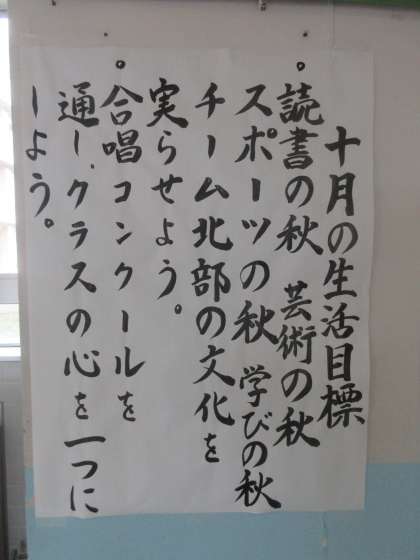 十月の生活目標
。読書の秋 芸術の秋
スポーツの秋 学びの秋
チーム北部の文化を
実らせよう。
。合唱コンクールを
通し、クラスの心を一つに
しよう。